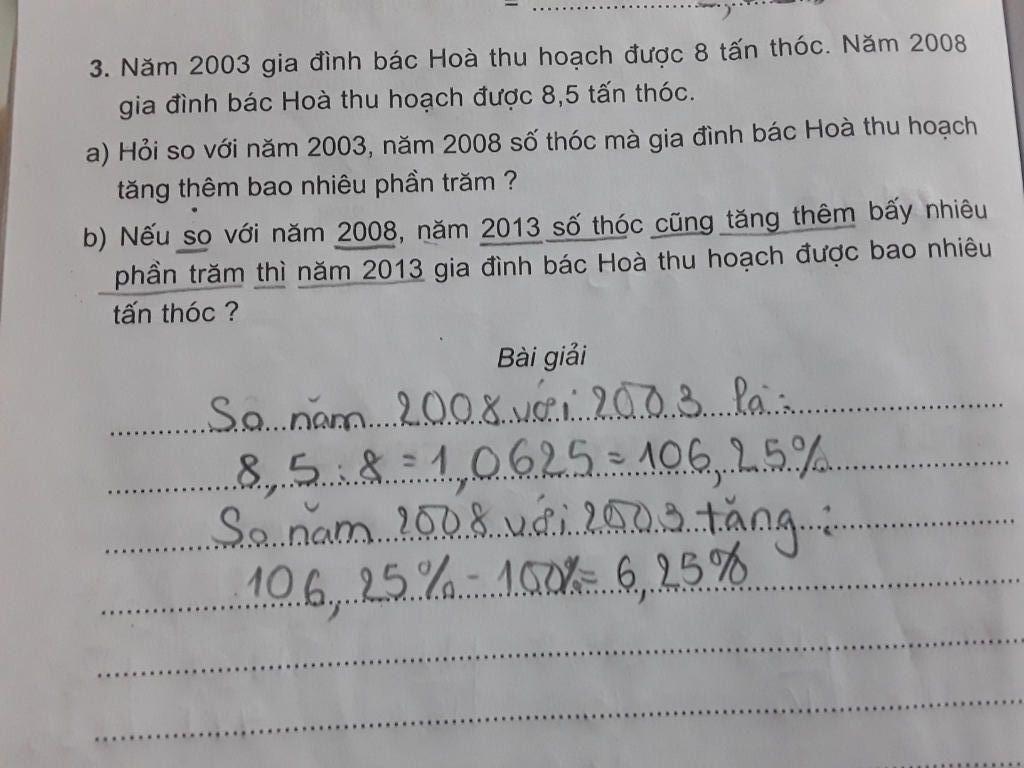 3. Năm 2003 gia đình bác Hoà thu hoạch được 8 tấn thóc. Năm 2008
gia đình bác Hoà thu hoạch được 8,5 tấn thóc.
a) Hỏi so với năm 2003, năm 2008 số thóc mà gia đình bác Hoà thu hoạch
tăng thêm bao nhiêu phần trăm ?
b) Nếu so với năm 2008, năm 2013 số thóc cũng tăng thêm bấy nhiêu
phần trăm thì năm 2013 gia đình bác Hoà thu hoạch được bao nhiêu
tấn thóc ?
Bài giải
So năm 2008 với 2003 là :
8,5 : 8 = 1,0625 = 106,25%
So năm 2008 với 2003 tăng :
106,25% - 100% = 6,25%